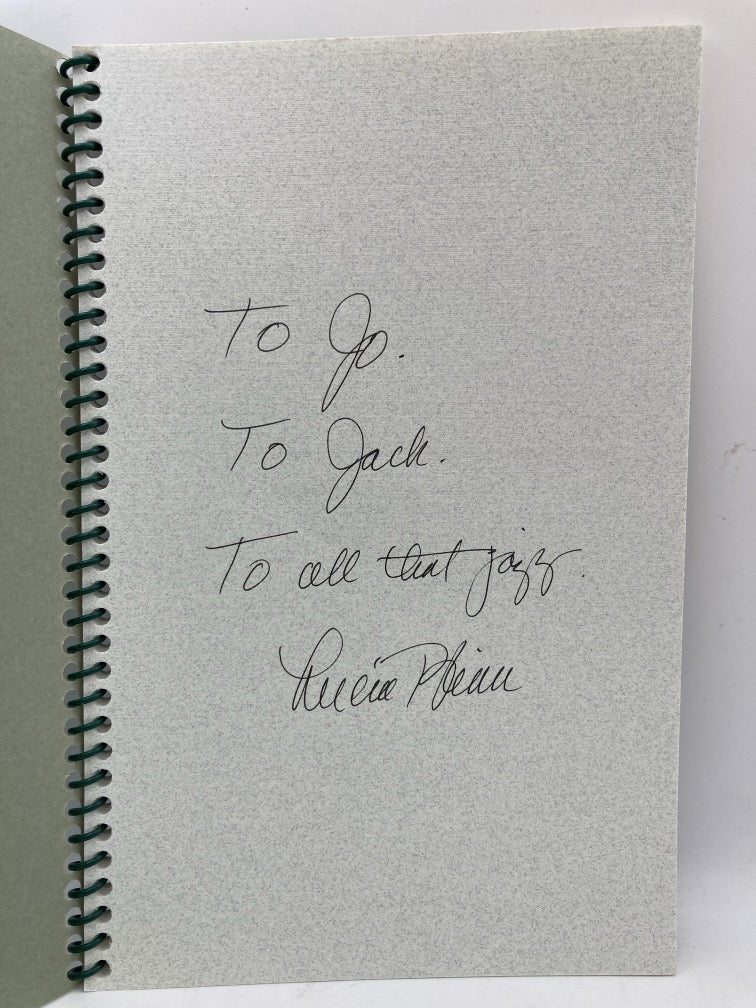 To Jo.
To Jack.
To all that jazz.
Lucia